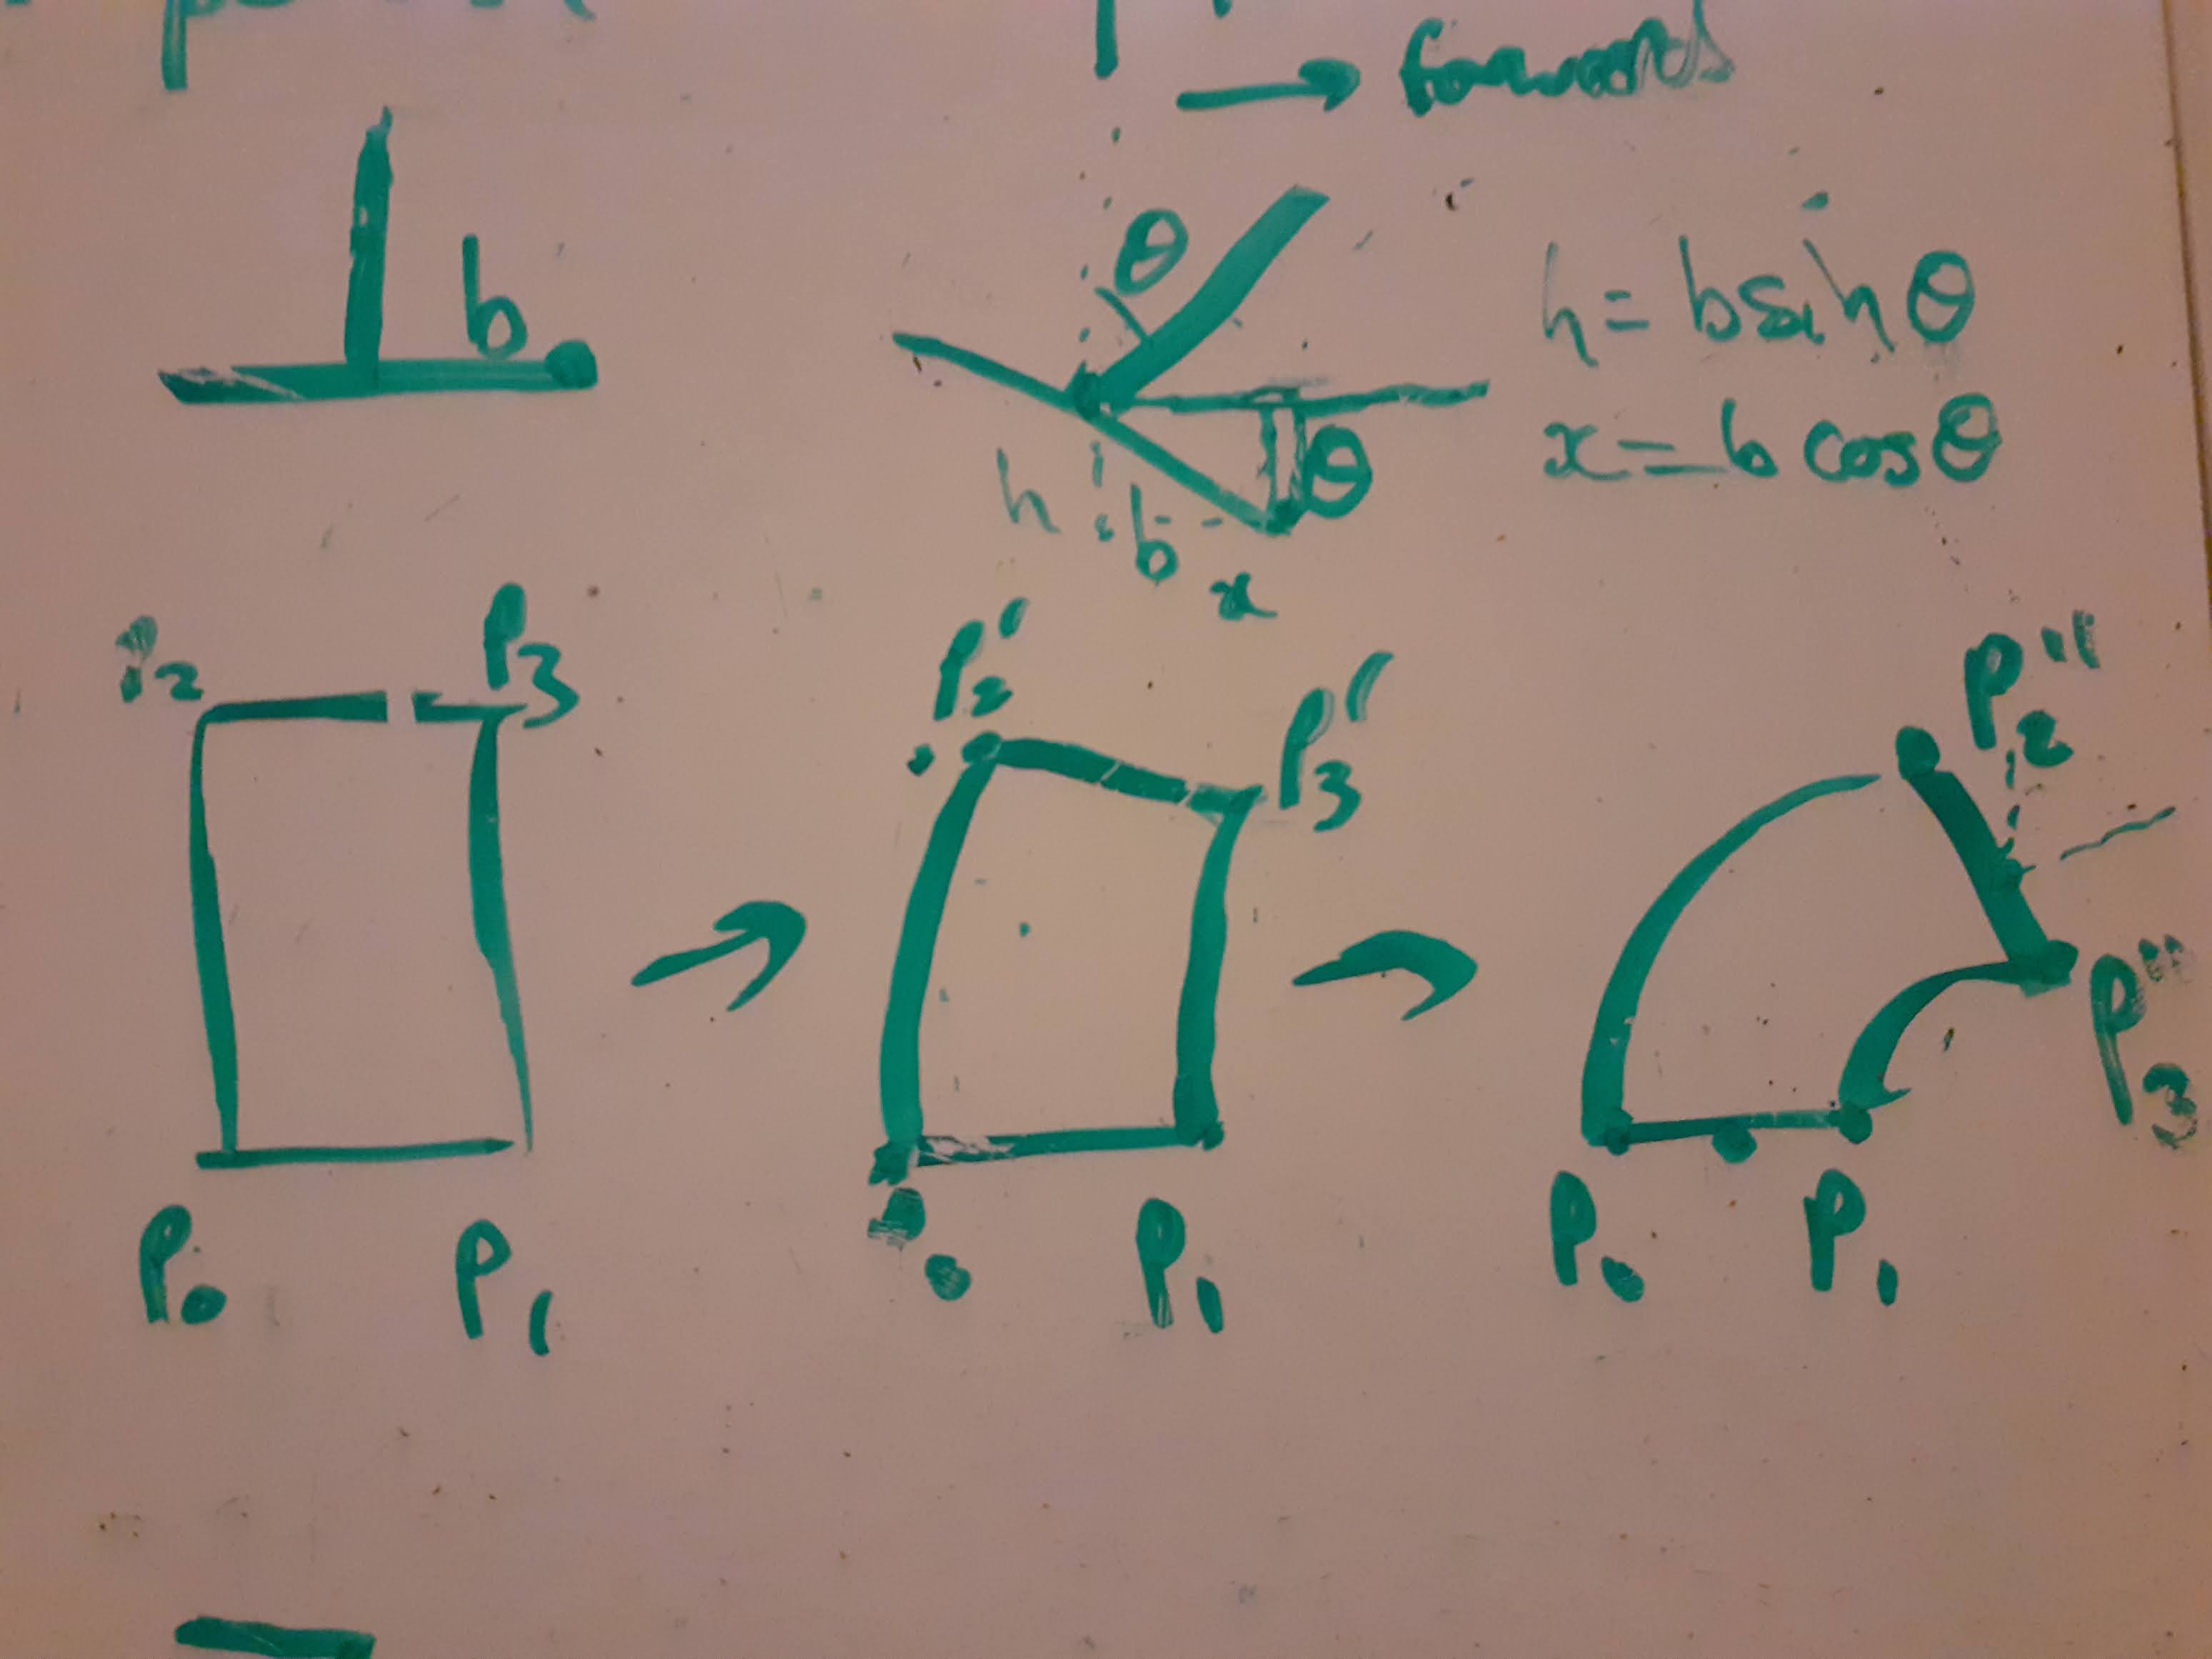 → forwards
b
θ
h = b sin θ
θ
x = b cos θ
h
b
x
P₂
P₃
P₂'
P₃'
P₂"
P₃"
P₀
P₁
P₀
P₁
P₀
P₁